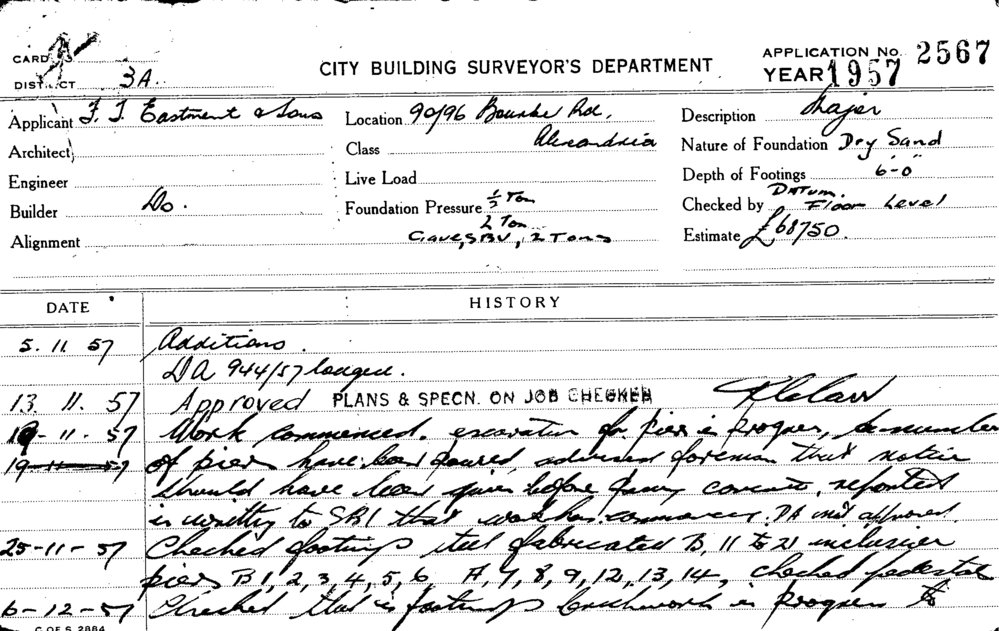 CARD
DISTRICT 3A.
CITY BUILDING SURVEYOR'S DEPARTMENT
APPLICATION No. 2567
YEAR 1957
Applicant F. T. Eastment & Sons
Location 90/96 Bourke Rd,
Alexandria
Description Major
Architect
Class
Nature of Foundation Dry Sand
Engineer
Live Load
Depth of Footings 6'-0"
Builder Do.
Foundation Pressure ½ Ton
2 Ton
Checked by DATUM Floor Level
Alignment
Gave, SBV, 2 Tons
Estimate £68750.
DATE
HISTORY
5. 11 57 Additions.
DA 944/57 lodged.
13 11. 57 Approved PLANS & SPECN. ON JOB CHECKED
19-11-57 Work commenced. excavation for piers in progress, a number
19-11-57 of piers have been poured, advised foreman that notice
should have been given before pouring concrete, reported
in writing to SBI that work has commenced. DA not approved.
25-11-57 Checked footings steel fabricated B, 11 to 21 inclusive
piers B1, 2, 3, 4, 5, 6, A, 7, 8, 9, 12, 13, 14, checked pedestal
6-12-57 Checked that is footings brickwork in progress to
C. OF S. 2884